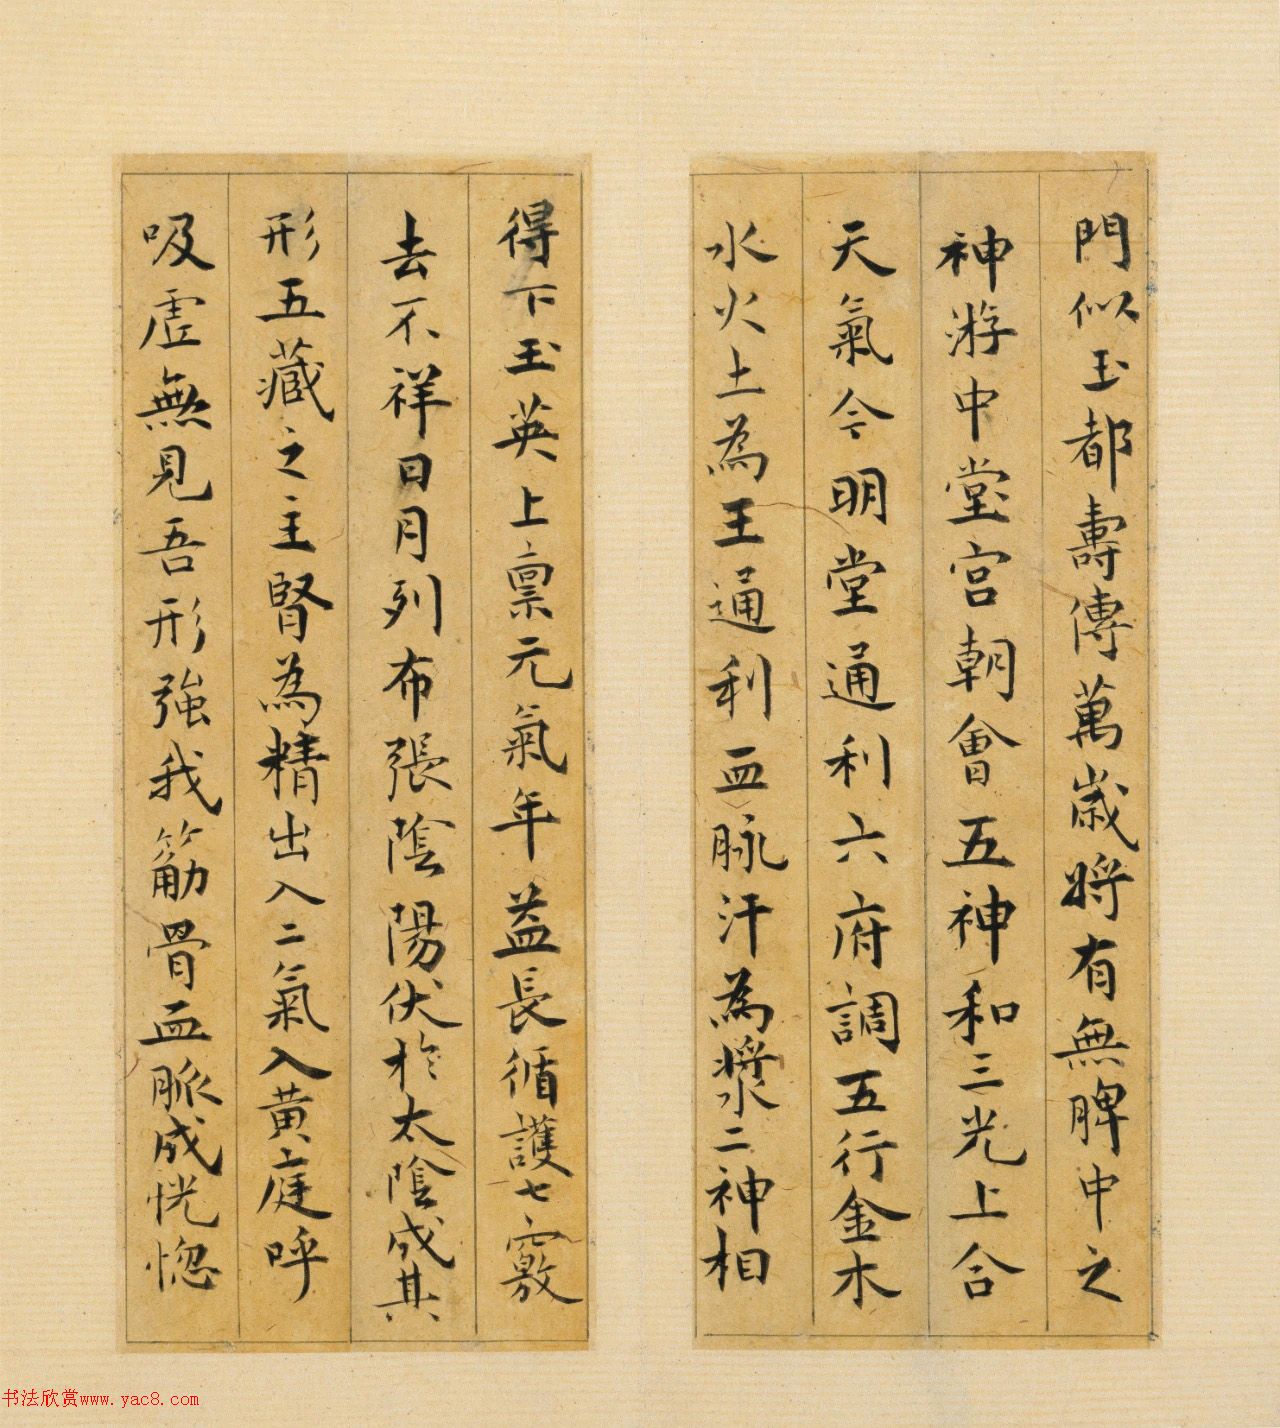 門似玉都壽傳萬歲將有無脾中之
神游中堂宮朝會五神和三光上合
天氣令明堂通利六府調五行金木
水火土為王通利血脉汗為漿二神相
得下玉英上稟元氣年益長循護七竅
去不祥日月列布張陰陽伏於太陰成其
形五藏之主腎為精出入二氣入黃庭呼
吸虛無見吾形強我筋骨血脈成恍惚
书法欣赏www.yac8.com